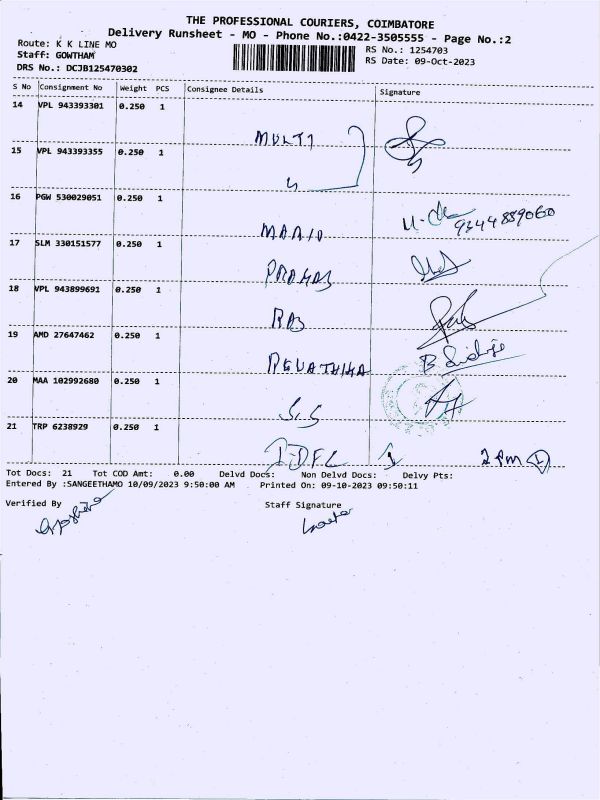 THE PROFESSIONAL COURIERS, COIMBATORE
Delivery Runsheet - MO - Phone No.:0422-3505555 - Page No.:2
Route: K K LINE MO
Staff: GOWTHAM
DRS No.: DCJB125470302
RS No.: 1254703
RS Date: 09-Oct-2023
S No Consignment No Weight PCS Consignee Details Signature
14 VPL 943393301 0.250 1 MULTI
15 VPL 943393355 0.250 1
16 PGW 530029051 0.250 1 MARIO 9344889060
17 SLM 330151577 0.250 1
18 VPL 943899691 0.250 1
19 AMD 27647462 0.250 1 REVATHIKA
20 MAA 102992680 0.250 1 S.S
21 TRP 6238929 0.250 1 IDFC 2 Pm
Tot Docs: 21 Tot COD Amt: 0.00 Delvd Docs: Non Delvd Docs: Delvy Pts:
Entered By :SANGEETHAMO 10/09/2023 9:50:00 AM Printed On: 09-10-2023 09:50:11
Verified By Staff Signature